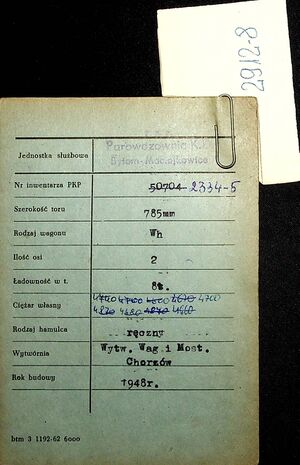 2912-8
Parowozownia K.D.
Bytom-Maciejkowice
Jednostka służbowa
Nr inwentarza PKP 50704 2334-5
Szerokość toru 785mm
Rodzaj wagonu Wh
Ilość osi 2
Ładowność w t. 8t.
Ciężar własny 4700 4700 4670 4700
4480 4870 4660
Rodzaj hamulca ręczny
Wytwórnia Wytw. Wag i Most.
Chorzów
Rok budowy 1948r.
btm 3 1192-62 6000